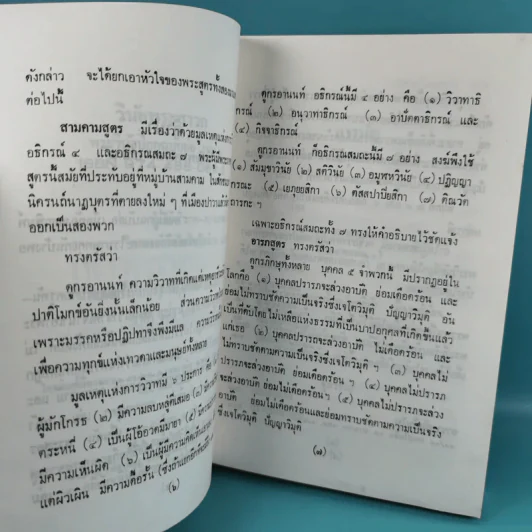 ดังกล่าว จะได้ยกเอาหัวใจของพระสูตรทั้งสอง
ต่อไปนี้
สามคามสูตร มีเรื่องว่าด้วยมูลเหตุแห่งการ
อธิกรณ์ ๔ และอธิกรณสมถะ ๗
สูตรนี้สมัยที่ประทับอยู่ที่หมู่บ้านสามคาม
นิครนถ์นาฏบุตรที่ตายลงใหม่ ๆ ที่เมืองปาวา
ออกเป็นสองพวก
ทรงตรัสว่า
ดูกรอานนท์ ความวิวาทที่เกิดแต่เหตุ
ปาติโมกข์อันยิ่งนั้นเล็กน้อย ส่วนความวิวาท
เพราะมรรคหรือปฏิปทาจึงพึงมีผล
เพื่อความทุกข์แห่งเทวดาและมนุษย์ทั้งหลาย
มูลเหตุแห่งการวิวาทมี ๖ ประการ คือ
ผู้มักโกรธ (๒) มีความลบหลู่ตีเสมอ (๓)
ตระหนี่ (๔) เป็นผู้โอ้อวดมีมายา (๕)
มีความเห็นผิด (๖) เป็นผู้มีความคิดเห็น
แต่ผิวเผิน มีความดื้อรั้น
(๖)
ดูกรอานนท์ อธิกรณ์นี้มี ๔ อย่าง คือ (๑) วิวาทาธิ
กรณ์ (๒) อนุวาทาธิกรณ์ (๓) อาปัตตาธิกรณ์ และ
(๔) กิจจาธิกรณ์
ดูกรอานนท์ ก็อธิกรณสมถะนี้มี ๗ อย่าง สงฆ์พึงใช้
(๑) สัมมุขาวินัย (๒) สติวินัย (๓) อมูฬหวินัย (๔) ปฏิญญา
กรณะ (๕) เยภุยยสิกา (๖) ตัสสปาปิยสิกา (๗) ติณวัต
ถารกะ ฯ
เฉพาะอธิกรณ์สมถะทั้ง ๗ ทรงให้คำอธิบายไว้ชัดแจ้ง
อารภสูตร ทรงตรัสว่า
ดูกรภิกษุทั้งหลาย บุคคล ๕ จำพวกนี้ มีปรากฏอยู่ใน
โลกคือ (๑) บุคคลปรารภจะล่วงอาบัติ ย่อมเดือดร้อน และ
ย่อมไม่ทราบชัดตามความเป็นจริงซึ่งเจโตวิมุติ ปัญญาวิมุติ อัน
เป็นที่ดับโดยไม่เหลือแห่งธรรมที่เป็นบาปอกุศลที่เกิดขึ้นแล้ว
แก่เธอ (๒) บุคคลปรารภจะล่วงอาบัติ ไม่เดือดร้อน และ
ไม่ทราบชัดตามความเป็นจริงซึ่งเจโตวิมุติ ฯ (๓) บุคคลไม่
ปรารภจะล่วงอาบัติ ย่อมเดือดร้อน ฯ (๔) บุคคลไม่ปรารภ
จะล่วงอาบัติ ย่อมไม่เดือดร้อน ฯ (๕) บุคคลไม่ปรารภจะล่วง
อาบัติ ย่อมไม่เดือดร้อนและย่อมทราบชัดตามความเป็นจริง
ซึ่งเจโตวิมุติ ปัญญาวิมุติ
(๗)